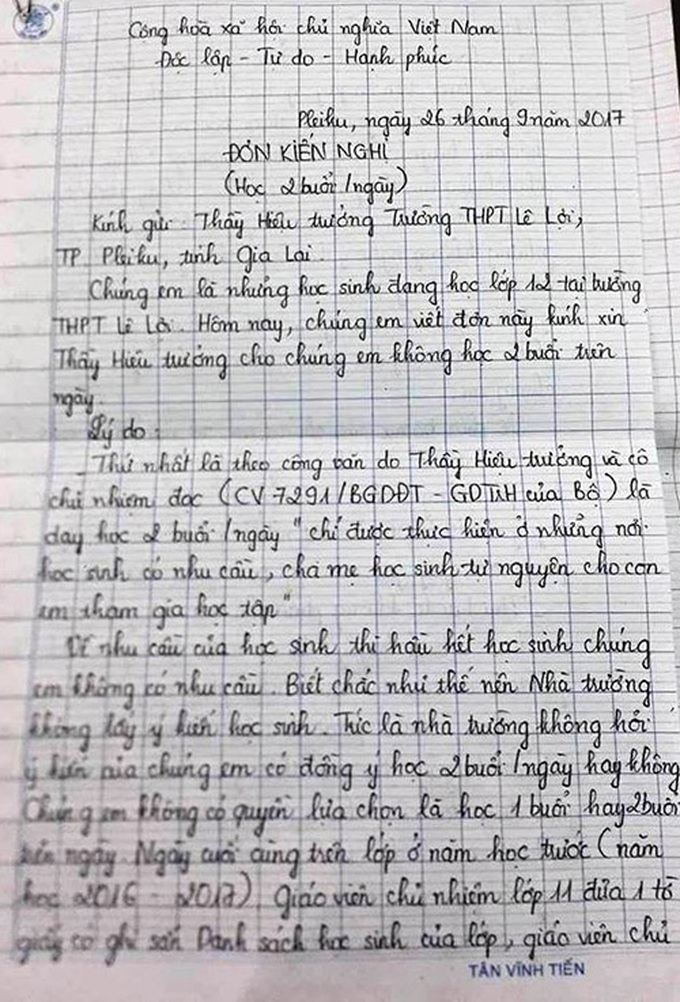 Cộng hoà xã hội chủ nghĩa Việt Nam
Độc lập - Tự do - Hạnh phúc
Pleiku, ngày 26 tháng 9 năm 2017
ĐƠN KIẾN NGHỊ
(Học 2 buổi/ngày)
Kính gửi: Thầy Hiệu trưởng Trường THPT Lê Lợi,
TP Pleiku, tỉnh Gia Lai.
Chúng em là những học sinh đang học lớp 12 tại trường
THPT Lê Lợi. Hôm nay, chúng em viết đơn này kính xin
Thầy Hiệu trưởng cho chúng em không học 2 buổi trên
ngày.
Lý do:
- Thứ nhất là theo công văn do Thầy Hiệu trưởng và cô
chủ nhiệm đọc (CV 7291/BGDĐT - GDTrH của Bộ) là
dạy học 2 buổi/ngày "chỉ được thực hiện ở những nơi
học sinh có nhu cầu, cha mẹ học sinh tự nguyện cho con
em tham gia học tập"
Về nhu cầu của học sinh thì hầu hết học sinh chúng
em không có nhu cầu. Biết chắc như thế nên Nhà trường
không lấy ý kiến học sinh. Tức là nhà trường không hỏi
ý kiến của chúng em có đồng ý học 2 buổi/ngày hay không
Chúng em không có quyền lựa chọn là học 1 buổi hay 2 buổi
trên ngày. Ngày cuối cùng trên lớp ở năm học trước (năm
học 2016 - 2017) Giáo viên chủ nhiệm lớp 11 đưa 1 tờ
giấy có ghi sẵn Danh sách học sinh của lớp, giáo viên chủ
TÂN VĨNH TIẾN